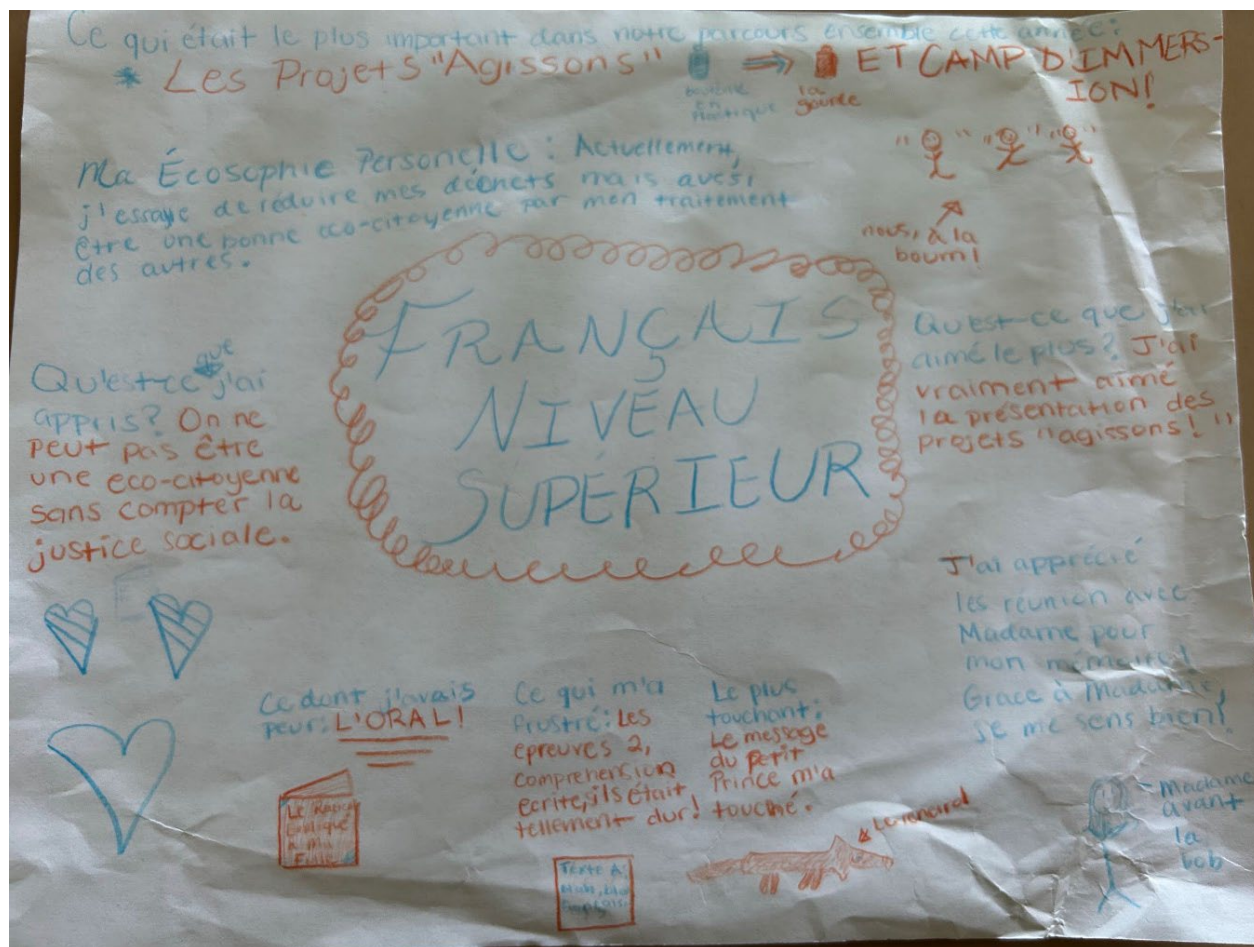 Ce qui était le plus important dans notre parcours ensemble cette année:
* Les Projets "Agissons" ⇒ ET CAMP D'IMMERS-
ION!
bouteille
en
plastique
la
gourde
Ma Écosophie Personelle: Actuellement,
j'essaye de réduire mes déchets mais aussi
être une bonne eco-citoyenne par mon traitement
des autres.
" " " " "
nous, à la
boum!
FRANÇAIS
NIVEAU
SUPÉRIEUR
Qu'est-ce que j'ai
appris? On ne
peut pas être
une eco-citoyenne
sans compter la
justice sociale.
Qu'est-ce que j'ai
aimé le plus? J'ai
vraiment aimé
la présentation des
projets "agissons!"
J'ai apprécié
les réunion avec
Madame pour
mon mémoire!
Grace à Madame,
je me sens bien!
Ce dont j'avais
peur: L'ORAL!
Le Racisme
Expliqué
à ma
Fille
Ce qui m'a
frustré: Les
epreuves 2,
comprehension
ecrite, ils était
tellement dur!
Texte A:
Le plus
touchant:
Le message
du petit
Prince m'a
touché.
Le renard
Madame
avant
la
bob